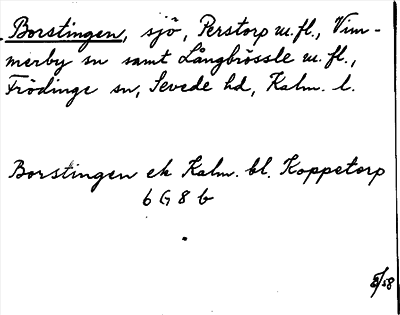 Borstingen, sjö, Perstorp m.fl., Vim-
merby sn samt Långbrössle m.fl.,
Frödinge sn, Sevede hd, Kalm. l.
Borstingen ek Kalm. bl. Koppetorp
6 G 8 b
5/58